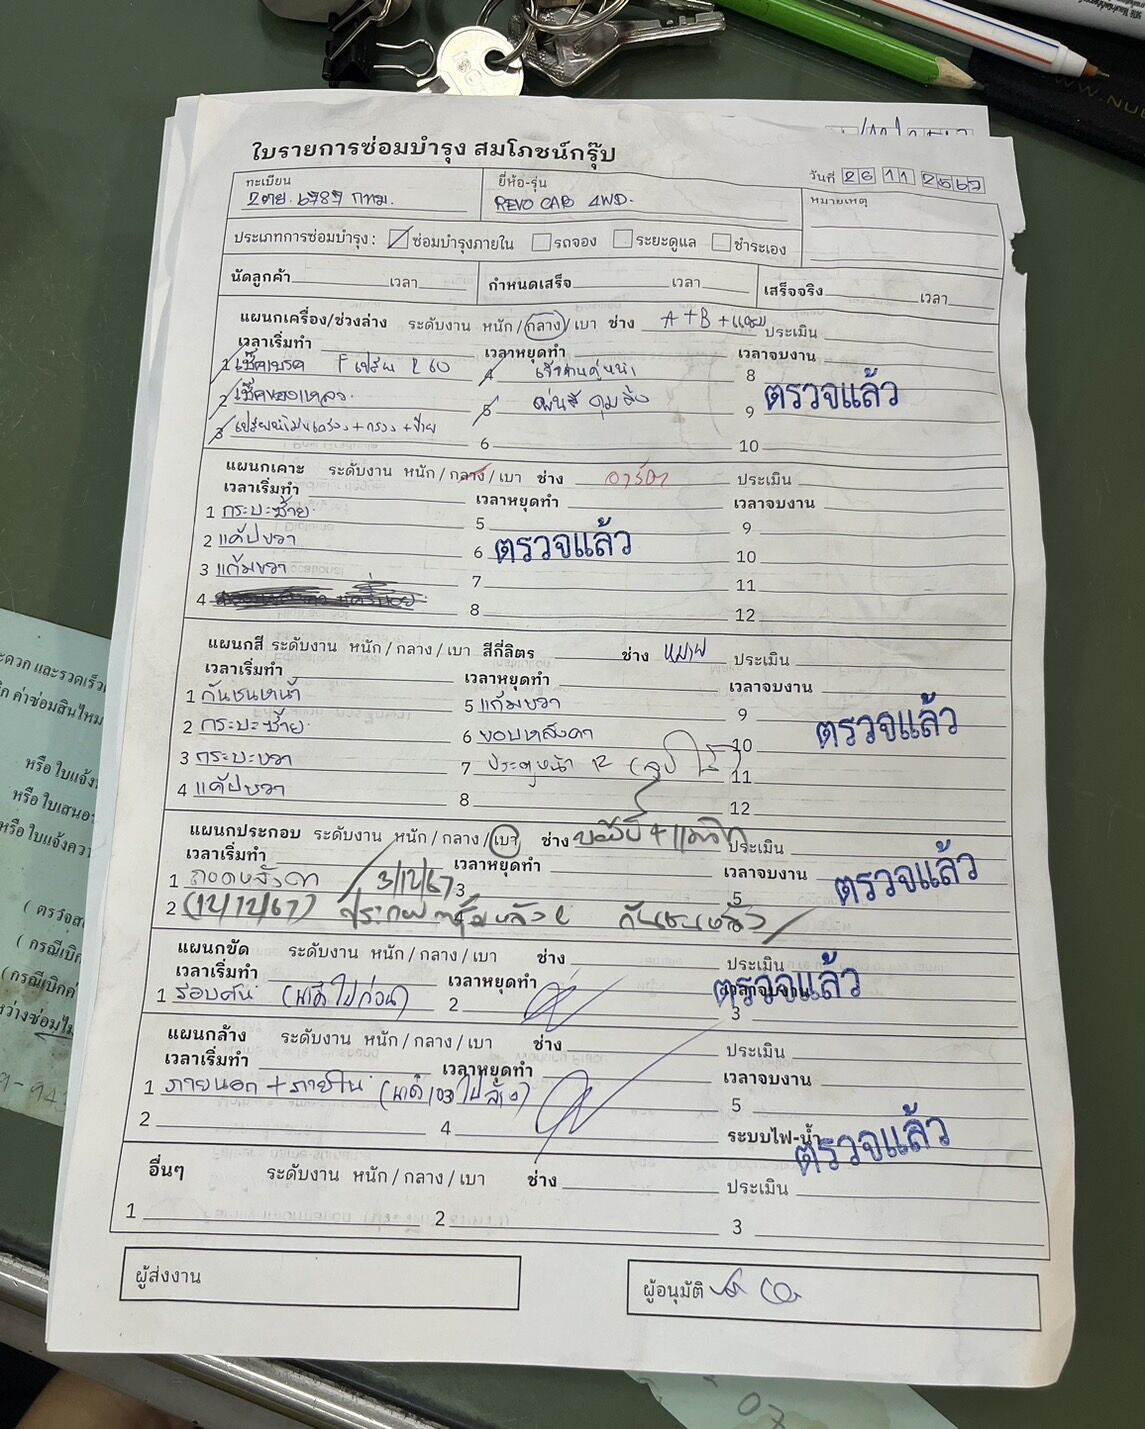 ใบรายการซ่อมบำรุง สมโภชน์กรุ๊ป
วันที่ 26 11 2567
ทะเบียน
ยี่ห้อ-รุ่น
หมายเหตุ
2ฒย. 6787 กทม.
REVO CAB 4WD.
ประเภทการซ่อมบำรุง : ซ่อมบำรุงภายใน รถจอง ระยะดูแล ชำระเอง
นัดลูกค้า เวลา กำหนดเสร็จ เวลา เสร็จจริง เวลา
แผนกเครื่อง/ช่วงล่าง ระดับงาน หนัก / กลาง / เบา ช่าง A+B+แชม ประเมิน
เวลาเริ่มทำ เวลาหยุดทำ เวลาจบงาน
1 เช็คเบรค F เปลี่ยน R 60 4 เจียรจานคู่หน้า 8
2 เช็คของเหลว. 5 9 ตรวจแล้ว
3 เปลี่ยนน้ำมันเครื่อง+กรอง 6 10
แผนกเคาะ ระดับงาน หนัก / กลาง / เบา ช่าง ประเมิน
เวลาเริ่มทำ เวลาหยุดทำ เวลาจบงาน
1 กระบะซ้าย. 5 9
2 แค้ปขวา 6 ตรวจแล้ว 10
3 แก้มขวา 7 11
4 8 12
แผนกสี ระดับงาน หนัก / กลาง / เบา สีกี่ลิตร ช่าง ประเมิน
เวลาเริ่มทำ เวลาหยุดทำ เวลาจบงาน
1 กันชนหน้า 5 แก้มขวา 9 ตรวจแล้ว
2 กระบะซ้าย. 6 ขอบหลังคา 10
3 กระบะขวา 7 ประตูหน้า 11
4 แค้ปขวา 8 12
แผนกประกอบ ระดับงาน หนัก / กลาง / เบา ช่าง ประเมิน
เวลาเริ่มทำ เวลาหยุดทำ เวลาจบงาน
1 ถอดหลังคา 3/12/67 3 5 ตรวจแล้ว
2 (12/12/67) กันชนหลัง
แผนกขัด ระดับงาน หนัก / กลาง / เบา ช่าง ประเมิน
เวลาเริ่มทำ เวลาหยุดทำ เวลาจบงาน
1 รอบคัน 2 3 ตรวจแล้ว
แผนกล้าง ระดับงาน หนัก / กลาง / เบา ช่าง ประเมิน
เวลาเริ่มทำ เวลาหยุดทำ เวลาจบงาน
1 ภายนอก + ภายใน 5
2 4 ระบบไฟ-น้ำ ตรวจแล้ว
อื่นๆ ระดับงาน หนัก / กลาง / เบา ช่าง ประเมิน
1 2 3
ผู้ส่งงาน ผู้อนุมัติ